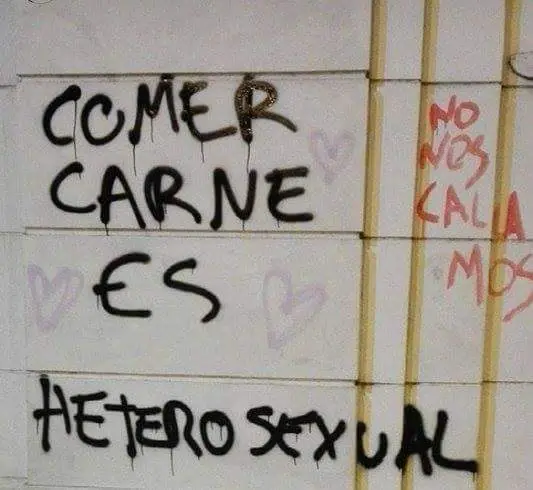 COMER
CARNE
ES
HETEROSEXUAL
NO
NOS
CALLA
MOS